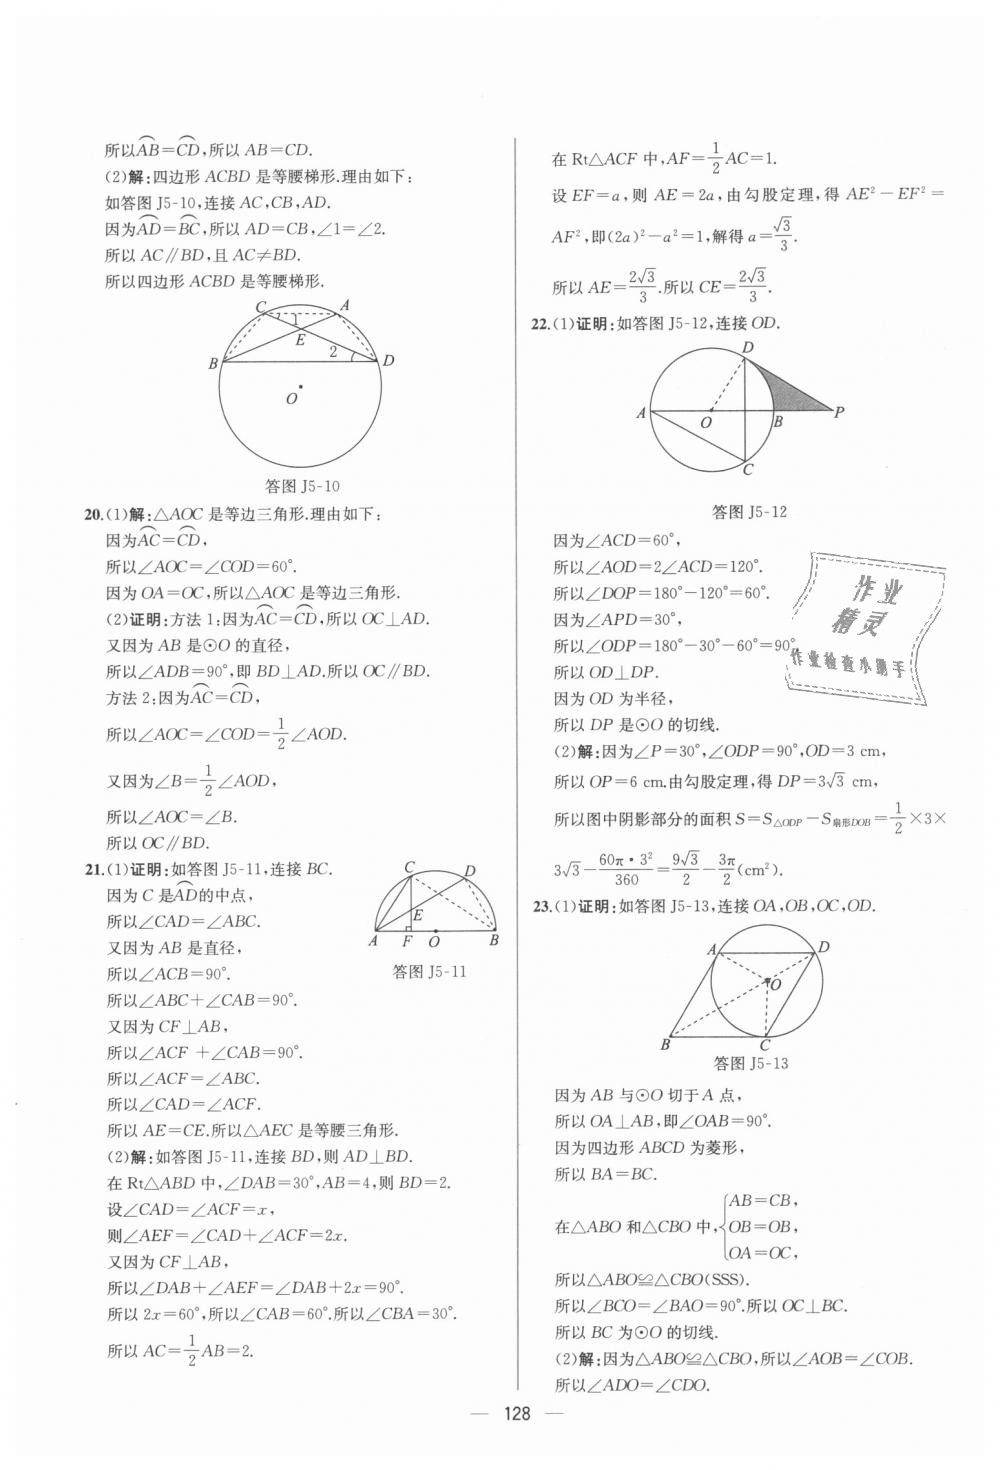 所以AB=CD,所以 AB=CD.
(2)解:四边形 ACBD 是等腰梯形.理由如下:
如答图 J5-10,连接 AC,CB,AD.
因为AD=BC,所以 AD=CB,∠1=∠2.
所以 AC∥BD,且 AC≠BD.
所以四边形 ACBD 是等腰梯形.
C A
1
E
2
B D
O
答图 J5-10
20.(1)解:△AOC 是等边三角形.理由如下:
因为AC=CD,
所以∠AOC=∠COD=60°.
因为 OA=OC,所以△AOC 是等边三角形.
(2)证明:方法 1:因为AC=CD,所以 OC⊥AD.
又因为 AB 是⊙O 的直径,
所以∠ADB=90°,即 BD⊥AD.所以 OC∥BD.
方法 2:因为AC=CD,
所以∠AOC=∠COD=1/2∠AOD.
又因为∠B=1/2∠AOD,
所以∠AOC=∠B.
所以 OC∥BD.
21.(1)证明:如答图 J5-11,连接 BC.
因为 C 是AD的中点,
所以∠CAD=∠ABC.
又因为 AB 是直径,
所以∠ACB=90°.
所以∠ABC+∠CAB=90°.
又因为 CF⊥AB,
所以∠ACF +∠CAB=90°.
所以∠ACF=∠ABC.
所以∠CAD=∠ACF.
所以 AE=CE.所以△AEC 是等腰三角形.
C D
E
A F O B
答图 J5-11
(2)解:如答图 J5-11,连接 BD,则 AD⊥BD.
在 Rt△ABD 中,∠DAB=30°,AB=4,则 BD=2.
设∠CAD=∠ACF=x,
则∠AEF=∠CAD+∠ACF=2x.
又因为 CF⊥AB,
所以∠DAB+∠AEF=∠DAB+2x=90°.
所以 2x=60°,所以∠CAB=60°.所以∠CBA=30°.
所以 AC=1/2AB=2.
在 Rt△ACF 中,AF=1/2AC=1.
设 EF=a,则 AE=2a,由勾股定理,得 AE²-EF²=
AF²,即(2a)²-a²=1,解得 a=√3/3.
所以 AE=2√3/3.所以 CE=2√3/3.
22.(1)证明:如答图 J5-12,连接 OD.
D
A O B P
C
答图 J5-12
因为∠ACD=60°,
所以∠AOD=2∠ACD=120°.
所以∠DOP=180°-120°=60°.
因为∠APD=30°,
所以∠ODP=180°-30°-60°=90°
所以 OD⊥DP.
因为 OD 为半径,
所以 DP 是⊙O 的切线.
(2)解:因为∠P=30°,∠ODP=90°,OD=3 cm,
所以 OP=6 cm.由勾股定理,得 DP=3√3 cm,
所以图中阴影部分的面积 S=S△ODP-S扇形DOB=1/2×3×
3√3-60π·3²/360=9√3/2-3π/2(cm²).
23.(1)证明:如答图 J5-13,连接 OA,OB,OC,OD.
A D
O
B C
答图 J5-13
因为 AB 与⊙O 切于A 点,
所以 OA⊥AB,即∠OAB=90°.
因为四边形 ABCD 为菱形,
所以 BA=BC.
在△ABO 和△CBO 中,{AB=CB,
OB=OB,
OA=OC,
所以△ABO≌△CBO(SSS).
所以∠BCO=∠BAO=90°.所以 OC⊥BC.
所以 BC 为⊙O 的切线.
(2)解:因为△ABO≌△CBO,所以∠AOB=∠COB.
所以∠ADO=∠CDO.
作业
精灵
作业检查小助手
— 128 —